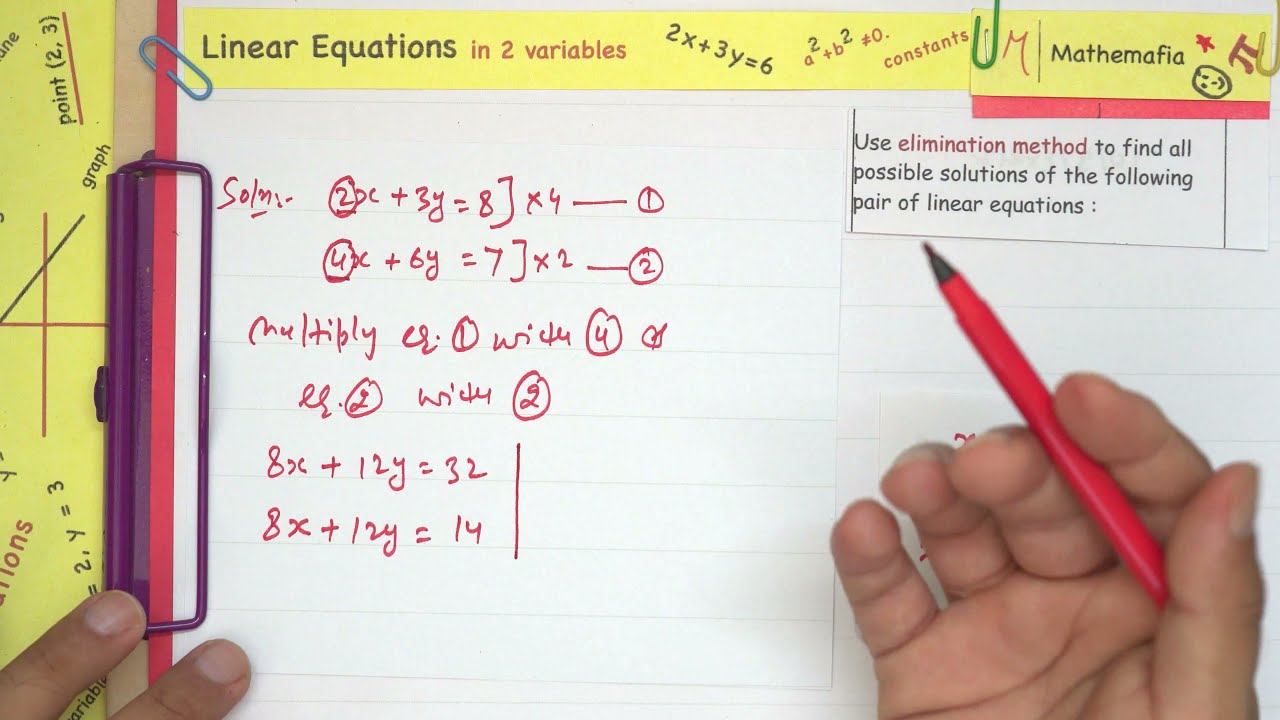 Linear Equations in 2 variables
2x+3y=6
a²+b² ≠0.
constants
M
Mathemafia
π
point (2, 3)
graph
Use elimination method to find all
possible solutions of the following
pair of linear equations :
Soln:- 2x + 3y = 8] ×4 —— ①
4x + 6y = 7] ×2 —— ②
multiply eq. ① with ④ &
eq. ② with ②
8x + 12y = 32
8x + 12y = 14
= 2, y = 3